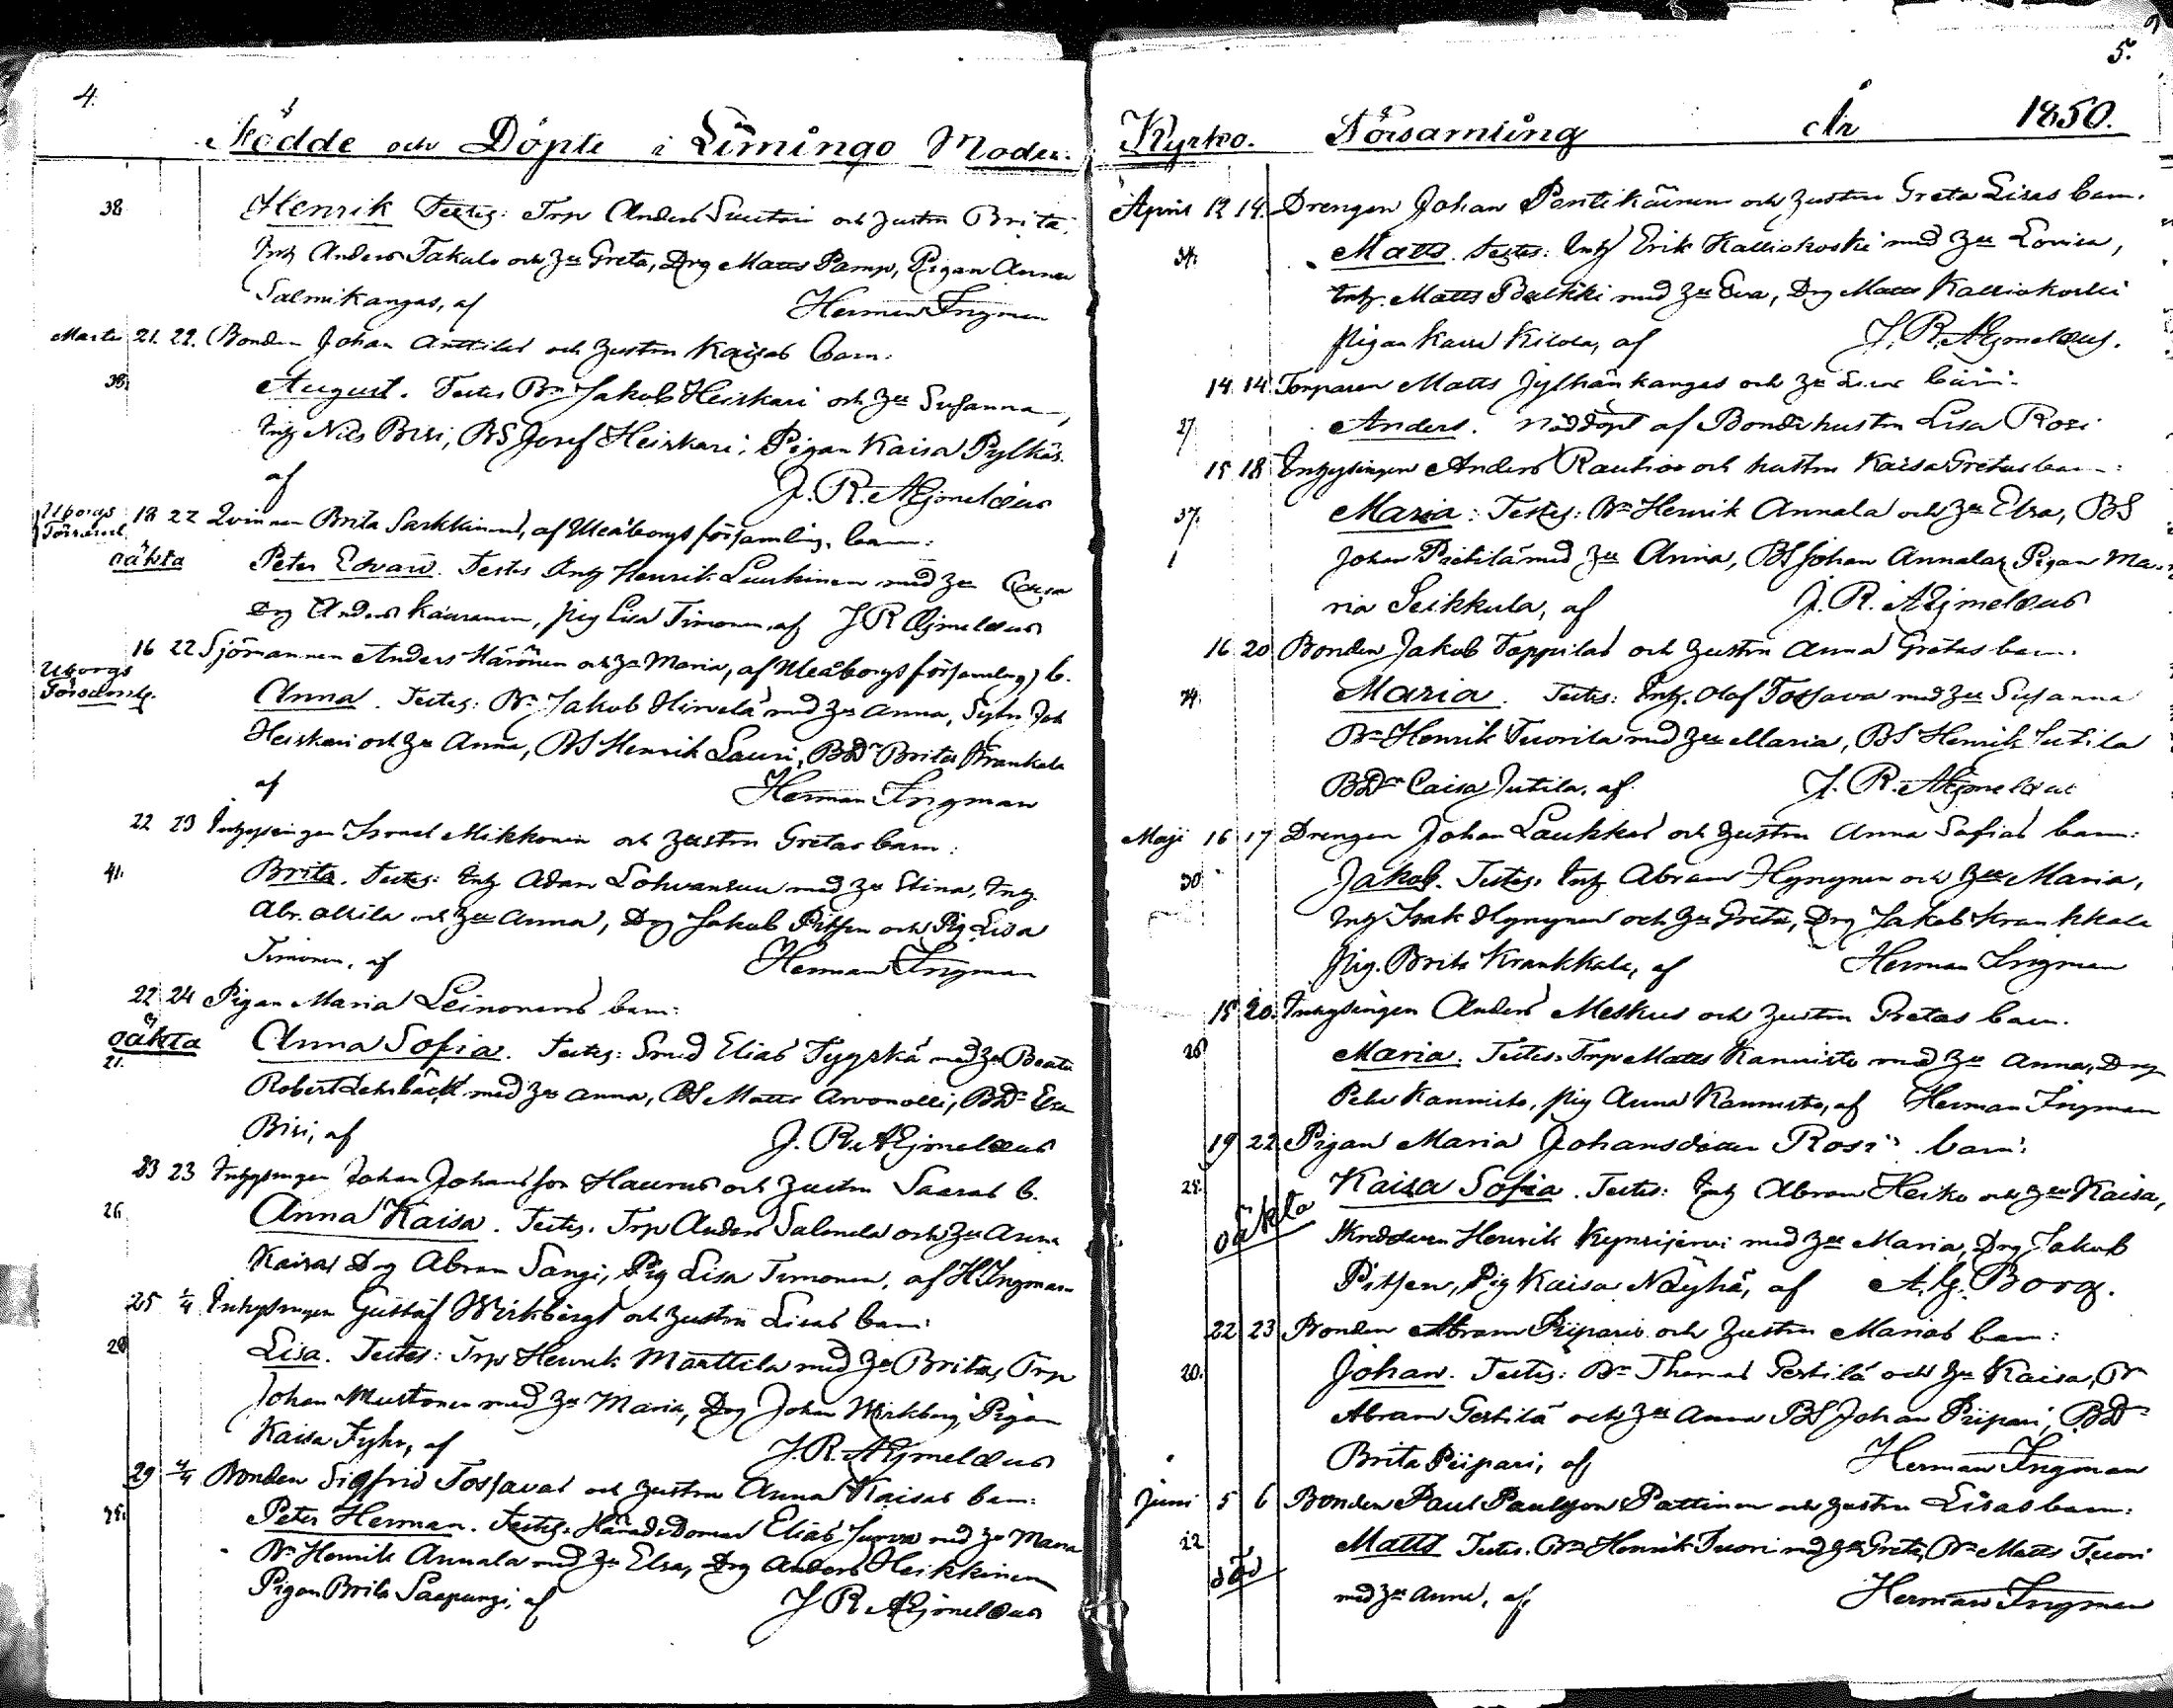 4.
Födde och Döpte i Limingo Moder.
38 Henrik Testes: Trp Anders Suutari och Hustru Brita
Inh Anders Takalo och Hu Greta, Drg Matts Pamp, Pigan Anna
Salmikangas, af Herman Ingman
Martii 21. 22. Bonden Johan Anttilas och Hustru Kaisas barn:
38. August. Testes Bn Jakob Heiskari och Hu Susanna,
Inh Nils Bisi, BS Josef Heiskari, Pigan Kaisa Pylkäs.
af J. R. Æjmelæus
Uborgs Församl. 18 22 Qvinnan Brita Sarkkinens, af Uleåborgs församling, barn:
oäkta Peter Edvard. Testes Inh Henrik Luukinen med Hu Caisa
Drg Anders Kauranen, pig Lisa Timonen, af J R Æjmelæus
Uborgs Församlg. 16 22 Sjömannen Anders Härönen och Hu Maria, af Uleåborgs församling, b.
Anna. Testes: Bn Jakob Hirvelä med Hu Anna, Joh
Heiskari och Hu Anna, BS Henrik Lauri, BDr Brita Krankala
af Herman Ingman
22 23 Inhysingen Israel Mikkonen och Hustru Gretas barn:
41. Brita. Testes: Inh Adam Lohvansuu med Hu Stina, Inh
Abr. Alkila och Hu Anna, Drg Jakob Pitsen och Pig Lisa
Timonen, af Herman Ingman
22 24 Pigan Maria Leinonens barn:
oäkta 21. Anna Sofia. Testes: Smed Elias Tyyskä med Hu Beata
Robert Lehrbäck med Hu Anna, BS Matts Arvonolli, BDr Elsa
Bisi, af J. R. Æjmelæus
23 23 Inhysingen Johan Johansson Haurus och Hustru Saaras b.
26 Anna Kaisa. Testes: Trp Anders Salmela och Hu Anna
Kaisa, Drg Abram Sangi, Pig Lisa Timonen, af H. Ingman
25 1/4 Inhysingen Gustaf Wirkbergs och Hustru Lisas barn:
28 Lisa. Testes: Trp Henrik Marttila med Hu Brita, Trp
Johan Mustonen med Hu Maria, Drg Johan Wirkberg, Pigan
Kaisa Fyhr, af J. R. Æjmelæus
29 4/4 Bonden Sigfrid Tossavas och Hustru Anna Kaisas barn:
Peter Herman. Testes: Häradsdomar Elias Jurva med Hu Maria
Bn Henrik Annala med Hu Elsa, Drg Anders Heikkinen
Pigan Brita Saapungi, af J R Æjmelæus
5.
Kyrko. Församling År 1850.
April 12 14. Drengen Johan Pentikäinens och Hustru Greta Lisas barn.
34. Matts. Testes: Inh Erik Kalliokoski med Hu Lovisa,
Inh. Matts Pelkki med Hu Eva, Drg Matts Kalliokoski
pigan Kaisa af J. R. Æjmelæus.
14 14 Torparen Matts Jylhänkangas och Hu barn:
27 Anders. Nöddöpt af Bondehustru Lisa Rosi
15 18 Inhysingen Anders Rautios och hustru Kaisa Gretas barn:
37. Maria: Testes: Bn Henrik Annala och Hu Elsa, BS
Johan Pietilä med Hu Anna, BS Johan Annala, Pigan Ma-
ria Seikkula, af J. R. Æjmelæus
16 20 Bonden Jakob Toppilas och Hustru Anna Gretas barn.
Maria. Testes: Inh. Olof Tossava med Hu Susanna
Bn Henrik Tuorila med Hu Maria, BS Henrik Jutila
BDr Caisa Jutila, af J. R. Æjmelæus
Maji 16 17 Drengen Johan Laukkas och Hustru Anna Sofias barn:
30 Jakob. Testes: Inh Abram Hyngynen och Hu Maria,
Inh Isak Hyngynen och Hu Greta, Drg Jakob Krankkala
pig. Brita Krankkala, af Herman Ingman
15 20. Inhysingen Anders Meskus och Hustru Gretas barn.
26 Maria. Testes: Trp Matts Kannisto med Hu Anna, Drg
Peter Kannisto, pig Anna Kannisto, af Herman Ingman
19 22 Pigan Maria Johansdotter Rosi barn:
25. oäkta Kaisa Sofia. Testes: Inh Abram Heiko och Hu Kaisa,
Skreddaren Henrik Kynsijervi med Hu Maria, Drg Jakob
Pitsen, Pig Kaisa Näyhä, af A. G. Borg.
22 23 Bonden Abram Piiparis och Hustru Marias barn:
20. Johan. Testes: Bn Thomas Pertilä och Hu Kaisa, Bn
Abram Pertilä och Hu Anna BS Johan Piipari, BDr
Brita Piipari, af Herman Ingman
Juni 5 6 Bonden Paul Paulsson Pattinen och Hustru Lisas barn:
22 Matts Testes. Bn Henrik Tuori med Hu Greta, Bn Matts Tuori
död med Hu Anna, af Herman Ingman